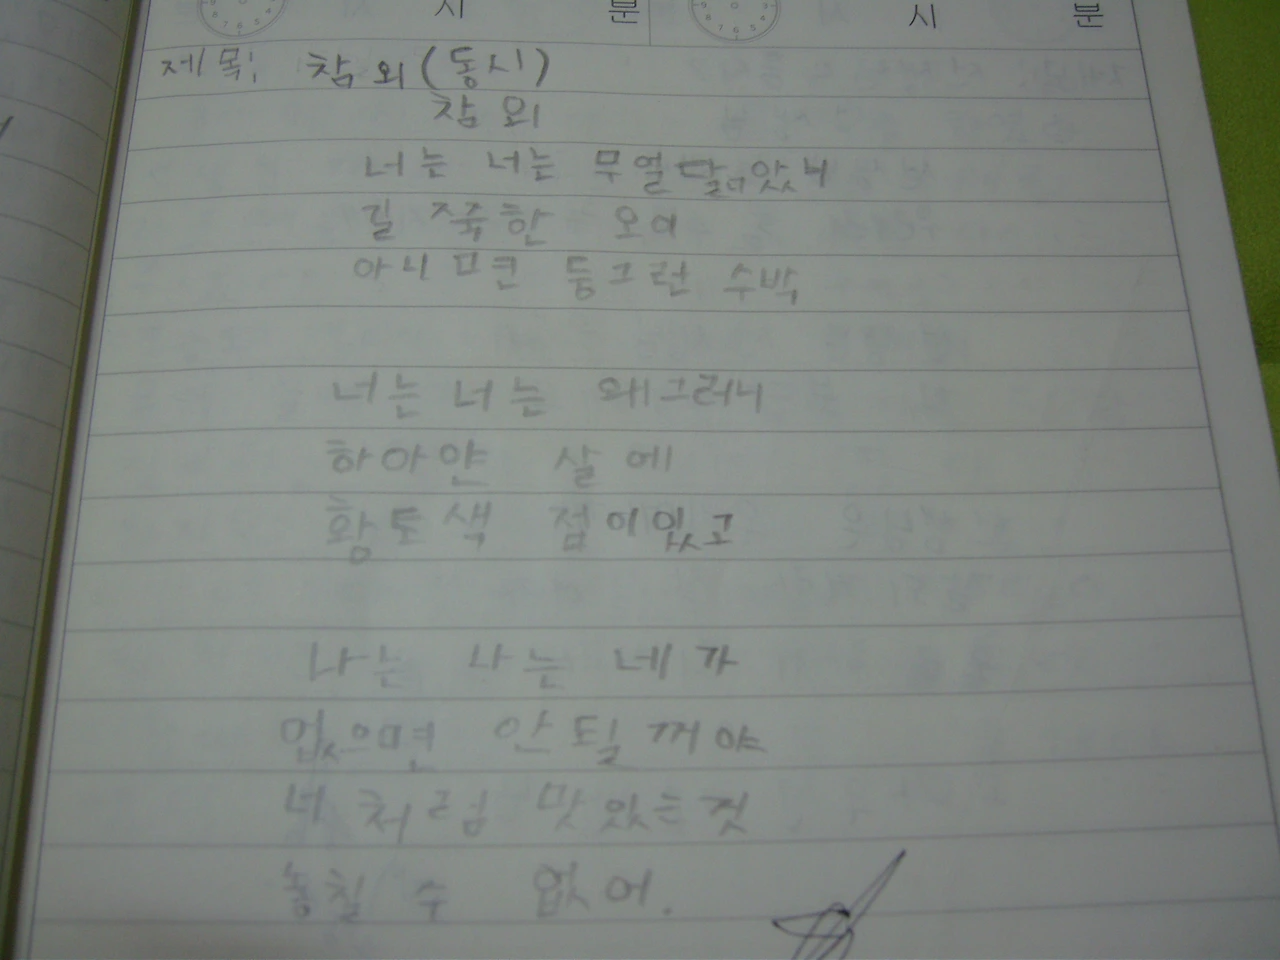 시 분 시 분
제목; 참외(동시)
참외
너는 너는 무얼 닮았니
길쭉한 오이
아니면 둥그런 수박
너는 너는 왜그러니
하아얀 살에
황토색 점이있고
나는 나는 네가
없으면 안될꺼야
너처럼 맛있는것
놓칠 수 없어.